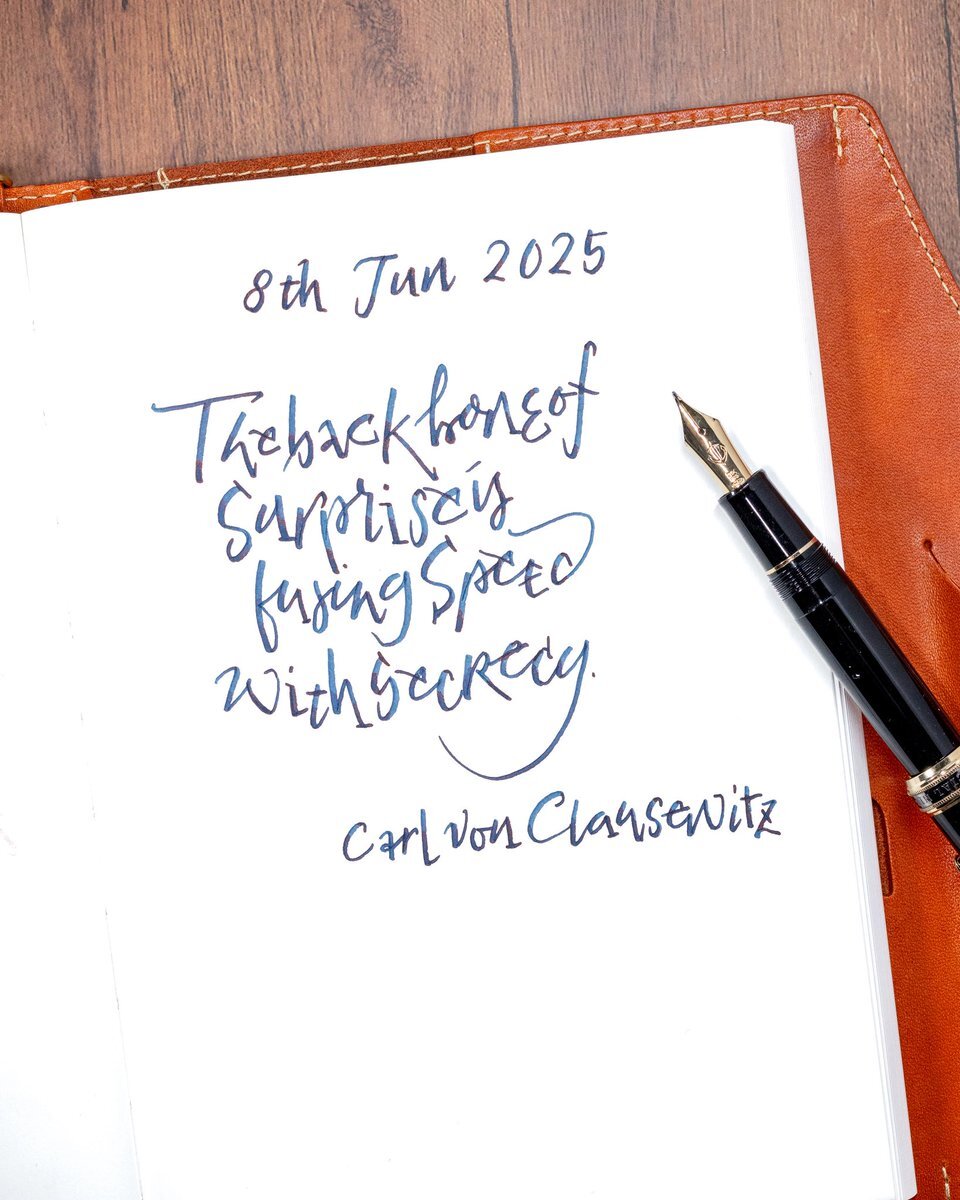 8th Jun 2025
The backbone of
Surprise is
fusing Speed
With Secrecy.
Carl von Clausewitz